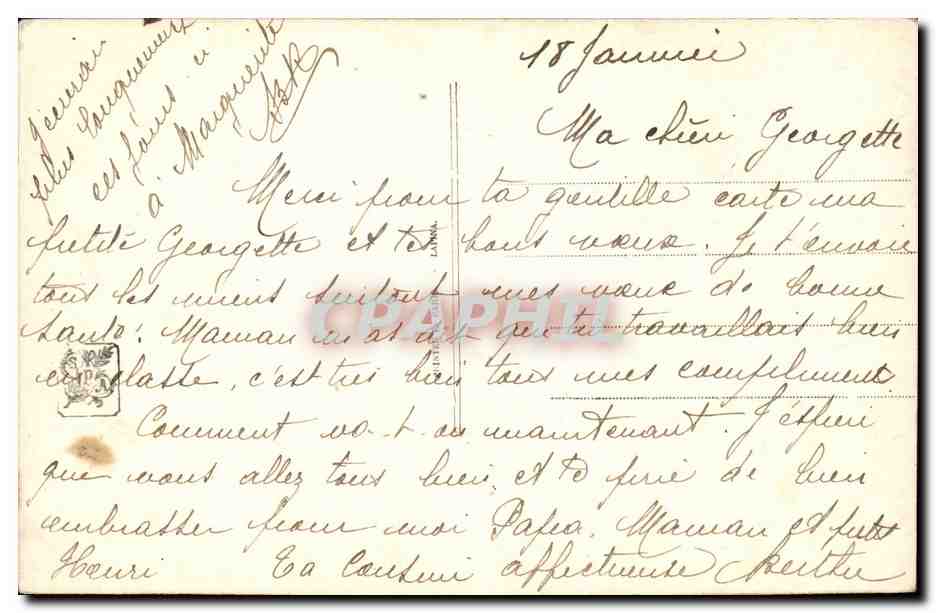 18 Janvier
Ma chère Georgette
Merci pour ta gentille carte ma
petite Georgette et tes bons vœux. Je t'envoie
tous les miens surtout mes vœux de bonne
santé. Maman m'as dit que tu travaillais bien
en classe, c'est très bien tous mes compliment.
Comment va-t-on maintenant. J'éspère
que vous allez tous bien, et te prie de bien
embrasser pour moi Papa, Maman et petit
Henri Ta Cousine affectueuse Berthe
J'écrirai
plus longuement
ces jours ci
à Marguerite
LAPINA.
CPAPHIL